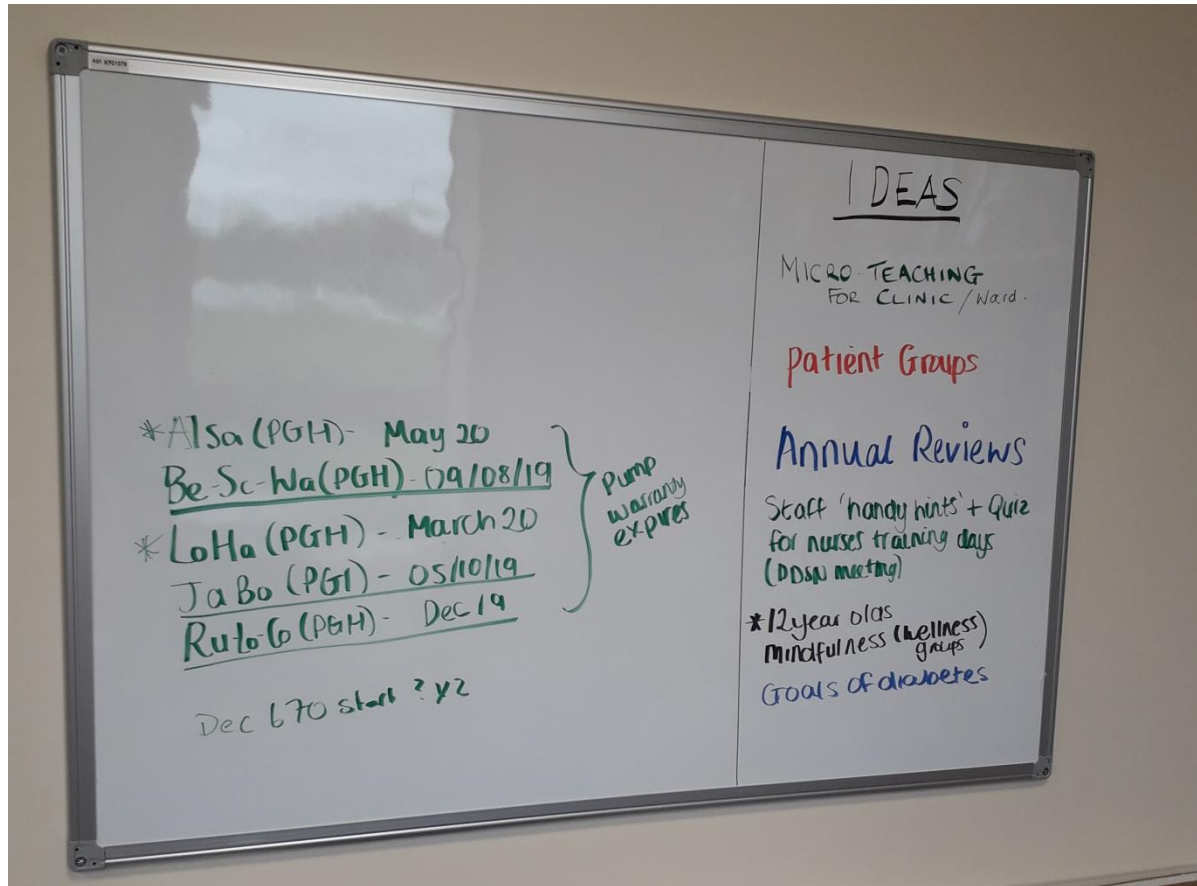 REF: KF01079
*Alsa (PGH) - May 20
Be-Sc-Wa (PGH) - 09/08/19
*LoHa (PGH) - March 20
JaBo (PGI) - 05/10/19
(PGH) - Dec 19
pump
warranty
expires
Dec 670 start ?
IDEAS
MICRO-TEACHING
FOR CLINIC / Ward.
patient Groups
Annual Reviews
Staff 'handy hints' + Quiz
for nurses training days
meeting)
*12 year olds
mindfulness (wellness
groups)
Goals of diabetes